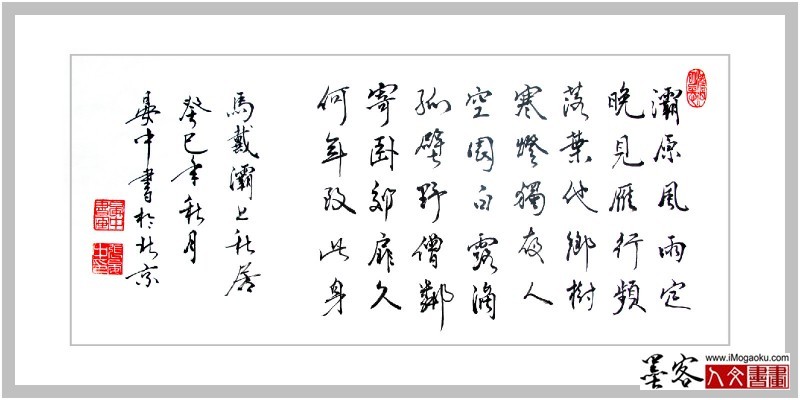 灞原風雨定
晚見雁行頻
落葉他鄉樹
寒燈獨夜人
空園白露滴
孤壁野僧鄰
寄卧郊扉久
何年致此身
馬戴灞上秋居
癸巳年秋月
中書於北京
墨客
www.iMogaoku.com
人文書畫